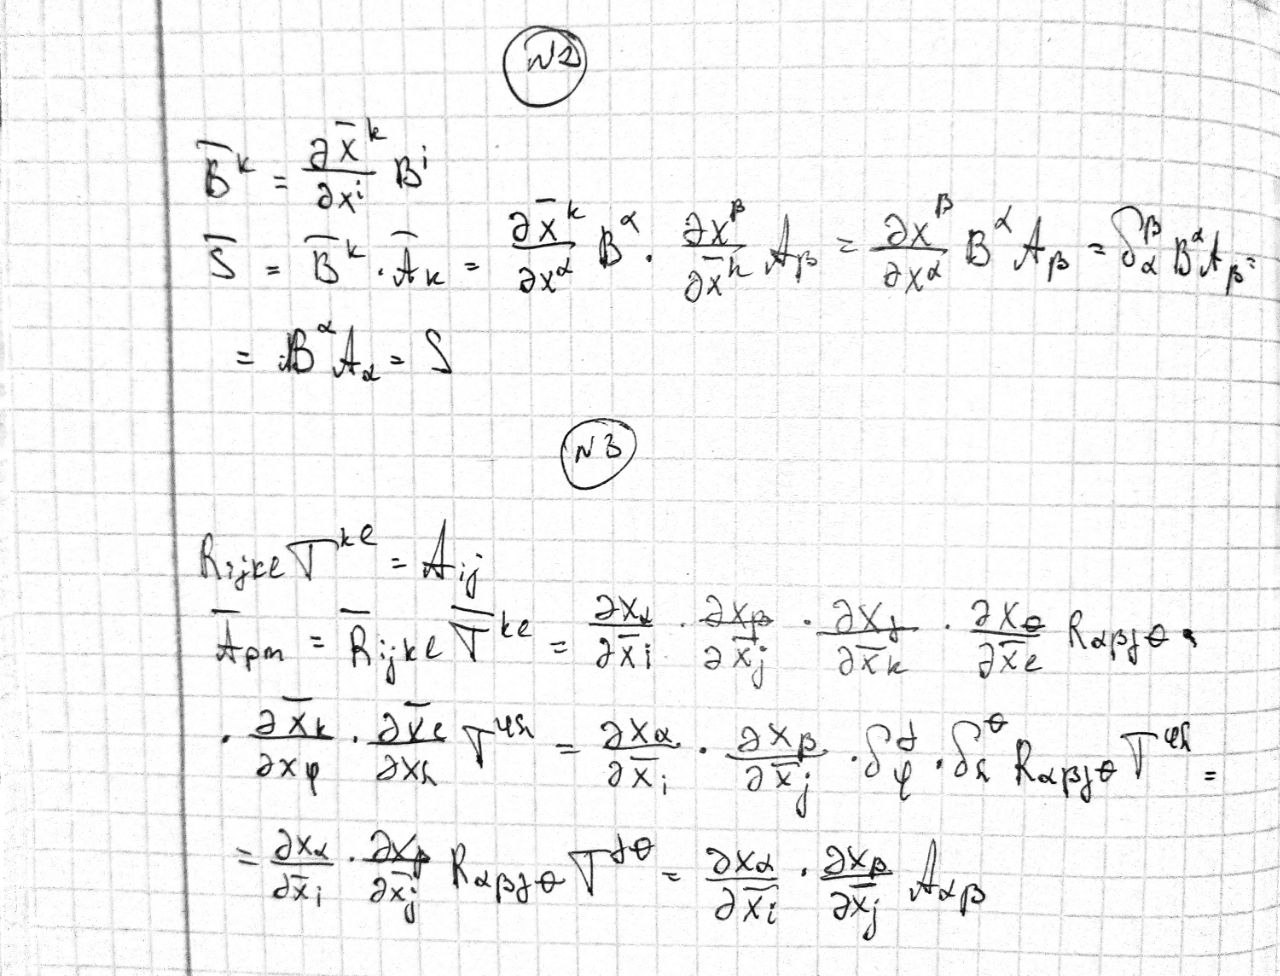 N2
B̅ᵏ = ∂x̅ᵏ/∂xⁱ Bⁱ
S̅ = B̅ᵏ · A̅ₖ = ∂x̅ᵏ/∂x^α B^α · ∂x^β/∂x̅ᵏ A_β = ∂x^β/∂x^α B^α A_β = δ_α^β B^α A_β =
= B^α A_α = S
N3
R_{ijkl} T^{kl} = A_{ij}
A̅_{pm} = R̅_{ijkl} T̅^{kl} = ∂x_α/∂x̅_i · ∂x_β/∂x̅_j · ∂x_γ/∂x̅_k · ∂x_θ/∂x̅_l R_{αβγθ} ·
· ∂x̅_k/∂x_φ · ∂x̅_l/∂x_h T^{φh} = ∂x_α/∂x̅_i · ∂x_β/∂x̅_j · δ_φ^γ · δ_h^θ R_{αβγθ} T^{φh} =
= ∂x_α/∂x̅_i · ∂x_β/∂x̅_j R_{αβγθ} T^{γθ} = ∂x_α/∂x̅_i · ∂x_β/∂x̅_j A_{αβ}